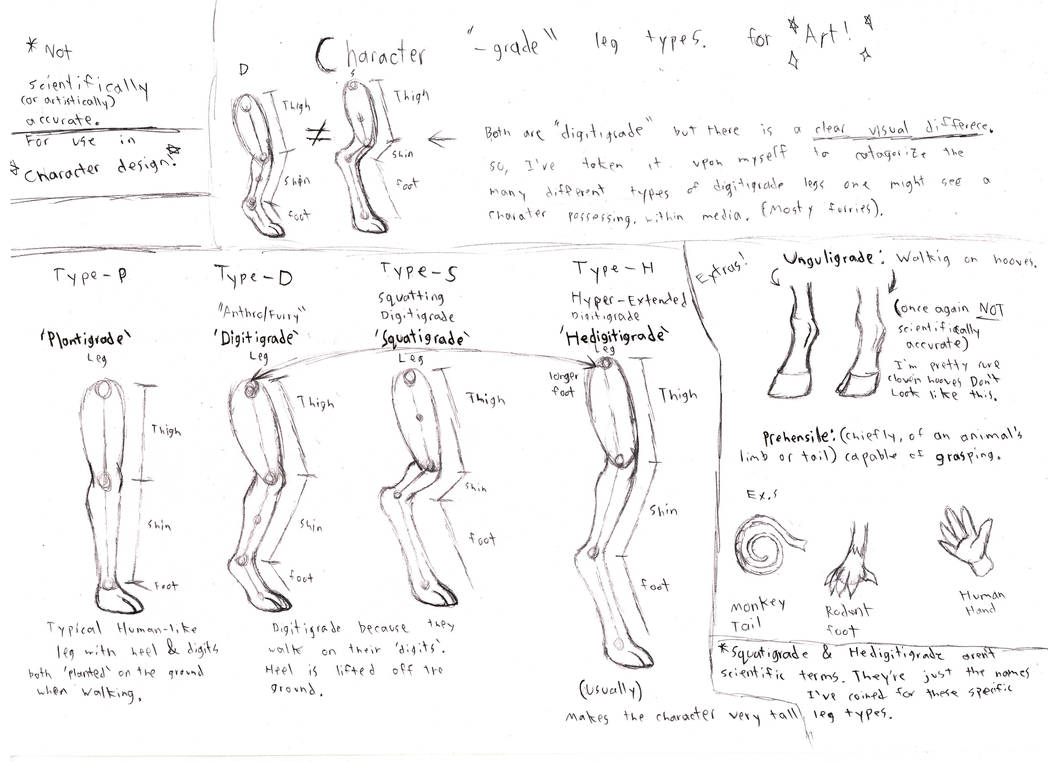 * Not
scientifically
(or artistically)
accurate.
For use in
Character design!
Character "-grade" leg types. for Art!
D
Thigh
Shin
Foot
≠
S
Thigh
Shin
Foot
Both are "digitigrade" but there is a clear visual differece.
so, I've taken it upon myself to catagorize the
many different types of digitigrade legs one might see a
charater possessing, within media. (Mosty furries).
Type-P
'Plantigrade'
Leg
Thigh
Shin
Foot
Typical Human-like
leg with heel & digits
both 'planted' on the ground
when walking.
Type-D
"Anthro/Furry"
'Digitigrade'
Leg
Thigh
Shin
Foot
Digitigrade because they
walk on their 'digits'.
Heel is lifted off the
ground.
Type-S
Squatting
Digitigrade
'Squatigrade'
Leg
Thigh
Shin
Foot
Type-H
Hyper-Extended
Digitigrade
'Hedigitigrade'
Leg
longer
foot
Thigh
Shin
Foot
(Usually)
makes the character very tall
Extras!
Unguligrade: Walkig on hooves.
(once again NOT
scientifically
accurate)
I'm pretty sure
cloven hooves Don't
Look like this.
Prehensile: (chiefly, of an animal's
limb or tail) capable of grasping.
Ex.s
Monkey
Tail
Rodent
foot
Human
Hand
*Squatigrade & Hedigitigrade arent
scientific terms. They're just the names
I've coined for these specific
leg types.